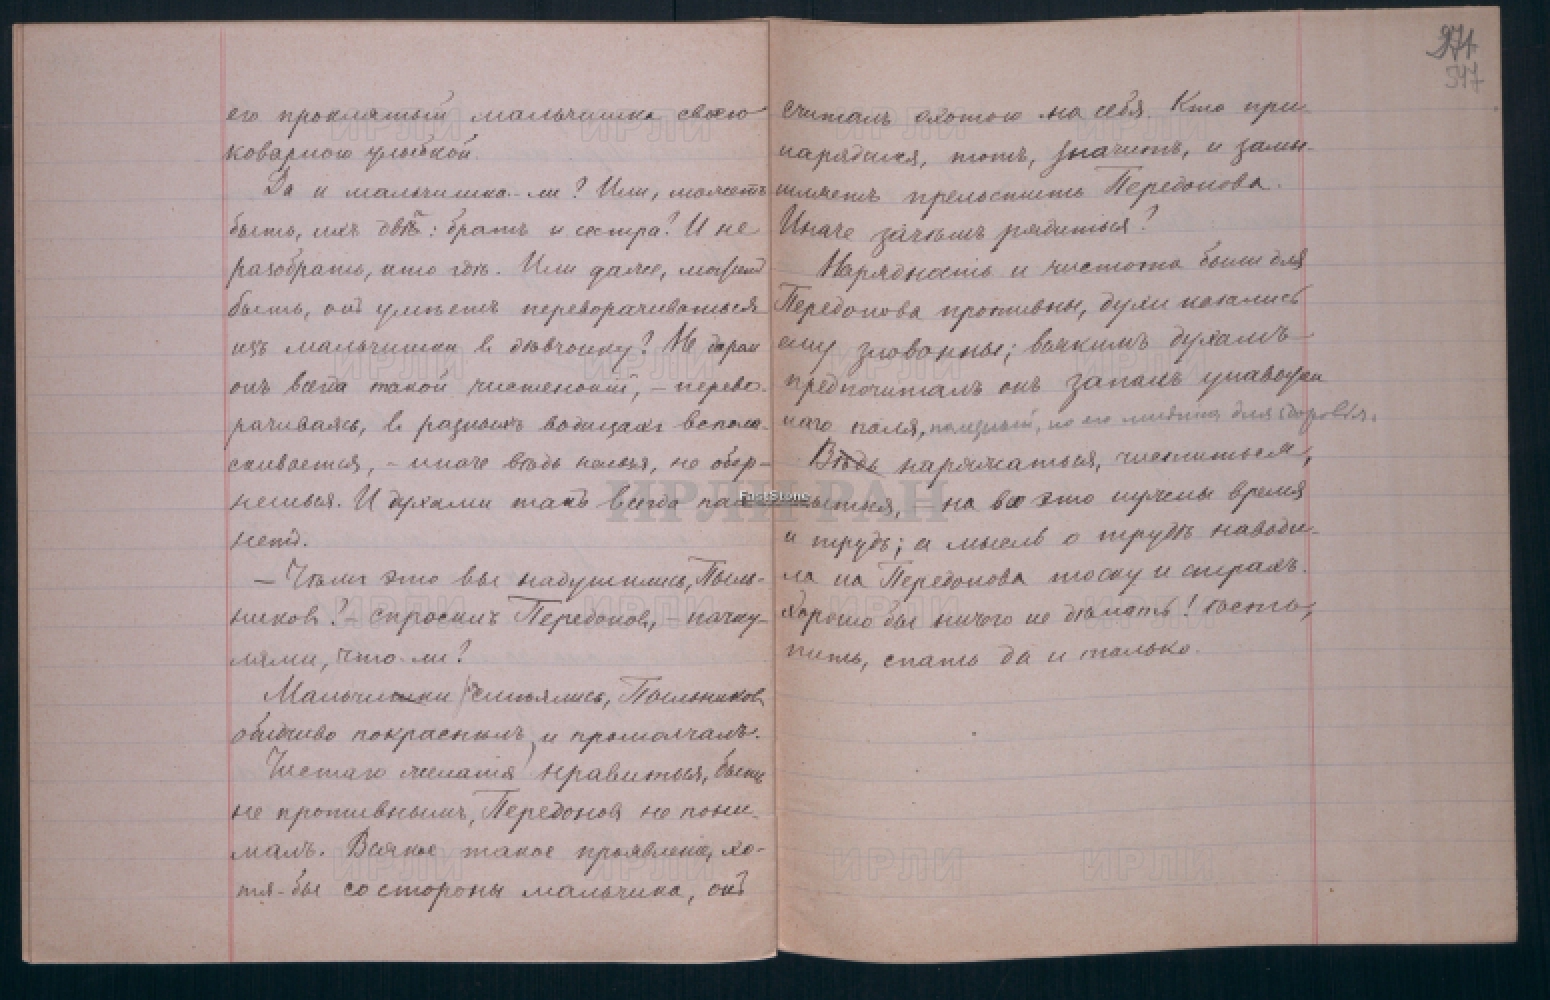 его проклятый мальчишка своею
коварною улыбкой.
Да и мальчишка-ли? Или, можетъ
быть, ихъ двѣ: братъ и сестра? И не
разобрать, кто гдѣ. Или даже, может
быть, онъ умѣетъ переворачиваться
изъ мальчишки в дѣвчонку? Не даром
онъ всегда такой чистенький, – перево-
рачиваясь, в разныхъ водицахъ всполас-
кивается, – иначе вѣдь нельзя, не обер-
нешься. И духами такъ всегда
нетъ.
– Чѣмъ это вы надушились, Пыль-
ников? – спросилъ Передонов, – пачку-
лями, что-ли?
Мальчишки засмѣялись, Пыльников
обидчиво покраснѣлъ, и промолчалъ.
Чистаго желанія нравиться, быть
не противнымъ, Передонов не пони-
малъ. Всякое такое проявленіе, хо-
тя-бы со стороны мальчика, онъ
274
547
считалъ охотою на себя. Кто при-
нарядился, тотъ, значитъ, и замы-
шляетъ прельстить Передонова.
Иначе зачѣмъ рядиться?
Нарядность и чистота были для
Передонова противны, духи казались
ему зловонны; всякимъ духамъ
предпочиталъ онъ запахъ унавожен
наго поля, полезный, по его мнѣнію для здоровья.
Вѣдь наряжаться, чиститься,
мыться, – на все это нужены время
и трудъ; а мысль о трудѣ наводи-
ла на Передонова тоску и страхъ.
Хорошо бы ничего не дѣлать! Есть,
пить, спать да и только.
ИРЛИ РАН
FastStone